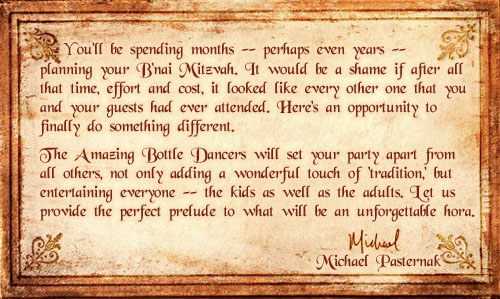 You'll be spending months -- perhaps even years --
planning your B'nai Mitzvah. It would be a shame if after all
that time, effort and cost, it looked like every other one that you
and your guests had ever attended. Here's an opportunity to
finally do something different.
The Amazing Bottle Dancers will set your party apart from
all others, not only adding a wonderful touch of 'tradition,' but
entertaining everyone -- the kids as well as the adults. Let us
provide the perfect prelude to what will be an unforgettable hora.
Michael
Michael Pasternak